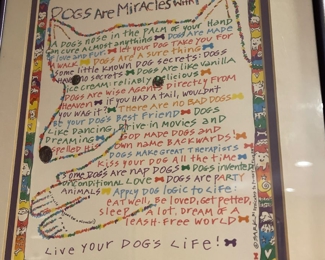 DOGS ARE MIRACLES WITH
A DOG'S NOSE IN THE PALM OF YOUR HAND
CAN CURE ALMOST ANYTHING DOGS ARE MADE
OF LOVE AND FUR. LET YOUR DOG TAKE YOU FOR
A WALK DOGS ARE A SURE THING
SOME LITTLE KNOWN DOG SECRETS: DOGS
NO SECRETS DOGS ARE LIKE VANILLA
ICE CREAM: RELIABLY DELICIOUS
DOGS ARE WISE AGENTS DIRECTLY FROM
HEAVEN IF YOU HAD A TAIL, WOULDN'T
YOU WAG IT? THERE ARE NO BAD DOGS
BE YOUR DOG'S BEST FRIEND DOGS
LIKE DANCING, DRIVE-IN MOVIES AND
DREAMING GOD MADE DOGS AND
SPELLED HIS OWN NAME BACKWARDS!
DOGS MAKE GREAT THERAPISTS
KISS YOUR DOG ALL THE TIME
SOME DOGS ARE NAP DOGS DOGS INVENTED
UNCONDITIONAL LOVE DOGS ARE PARTY
ANIMALS APPLY DOG LOGIC TO LIFE:
EAT WELL, BE LOVED, GET PETTED,
SLEEP A LOT, DREAM OF A
LEASH-FREE WORLD
LIVE YOUR DOG'S LIFE!